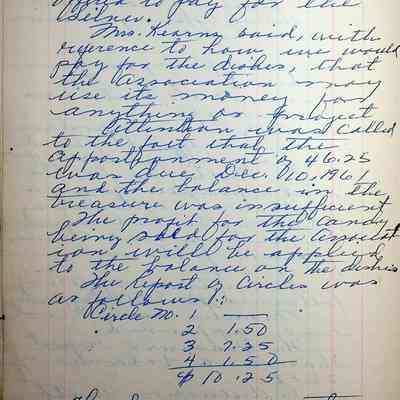 offered to pay for the
dinner.
Mrs. Kearny said, with
reference to how we would
pay for the dishes, that
the Association may
use its money for
anything or project
Attention was called
to the fact that the
apportionment of 46.25
was due Dec. 10, 1961
and the balance in the
treasure was insufficient
The profit for the candy
being sold for the Associat
ion will be applied
to the balance on the dishes
The Report of Circles was
as follows:
Circle No. 1 ——
2 1.50
3 7.25
4. 1.50
$ 10.25